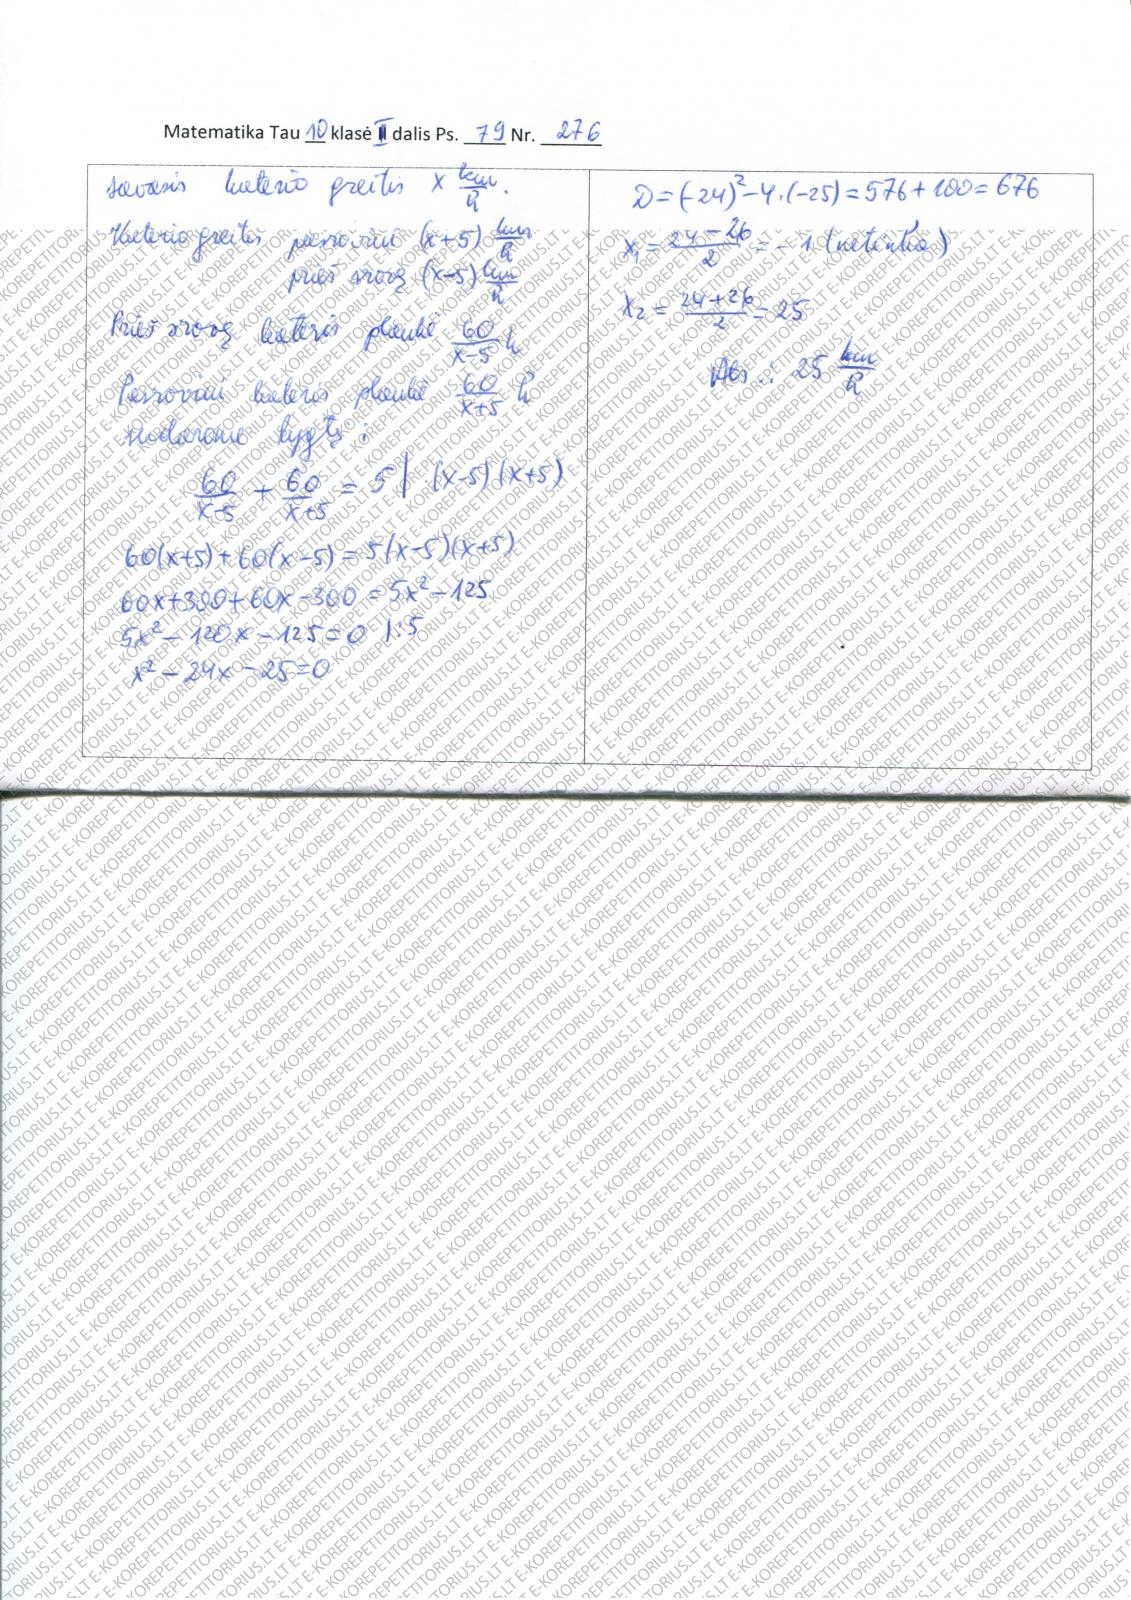 Matematika Tau 10 klasė I dalis Ps. 79 Nr. 276
savasis katerio greitis x km/h.
Katerio greitis pasroviui (x+5) km/h
prieš srovę (x-5) km/h
Prieš srovę kateris plaukė 60/(x-5) h
Pasroviui kateris plaukė 60/(x+5) h
sudarome lygtį:
60/(x-5) + 60/(x+5) = 5 | (x-5)(x+5)
60(x+5)+60(x-5)=5(x-5)(x+5)
60x+300+60x-300=5x²-125
5x²-120x-125=0 |:5
x²-24x-25=0
D=(-24)²-4·(-25)=576+100=676
x₁=(24-26)/2=-1 (netinka)
x₂=(24+26)/2=25
Ats.: 25 km/h
E-KOREPETITORIUS.LT